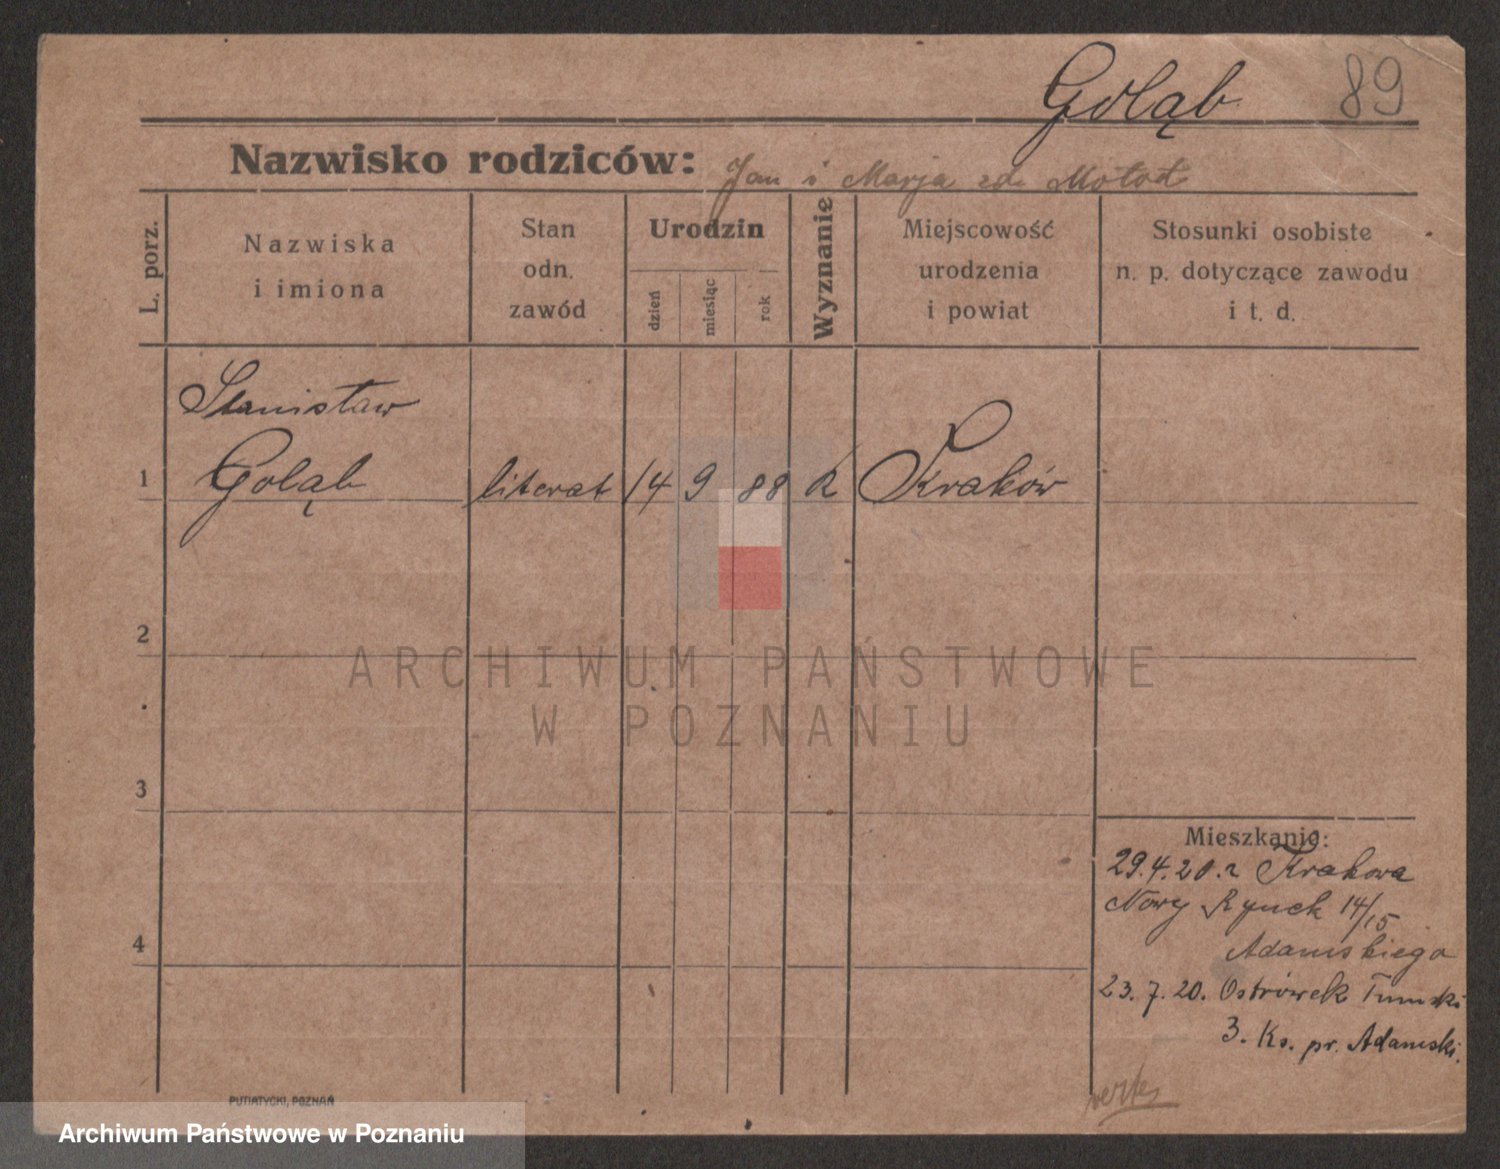 Gołąb 89
Nazwisko rodziców: Jan i Marja zd.
L. porz.
Nazwiska
i imiona
Stan
odn.
zawód
Urodzin
dzień
miesiąc
rok
Wyznanie
Miejscowość
urodzenia
i powiat
Stosunki osobiste
n. p. dotyczące zawodu
i t. d.
Stanisław
1 Gołąb literat 14 9 88 R Kraków
2
ARCHIWUM PAŃSTWOWE
W POZNANIU
3
Mieszkanie:
29.4.20. z Krakowa
Nowy Rynek 14/15
4
Adamskiego
23.7.20. Ostrówek Tumski
3. Ks. pr. Adamski.
PUTIATYCKI, POZNAŃ
Archiwum Państwowe w Poznaniu